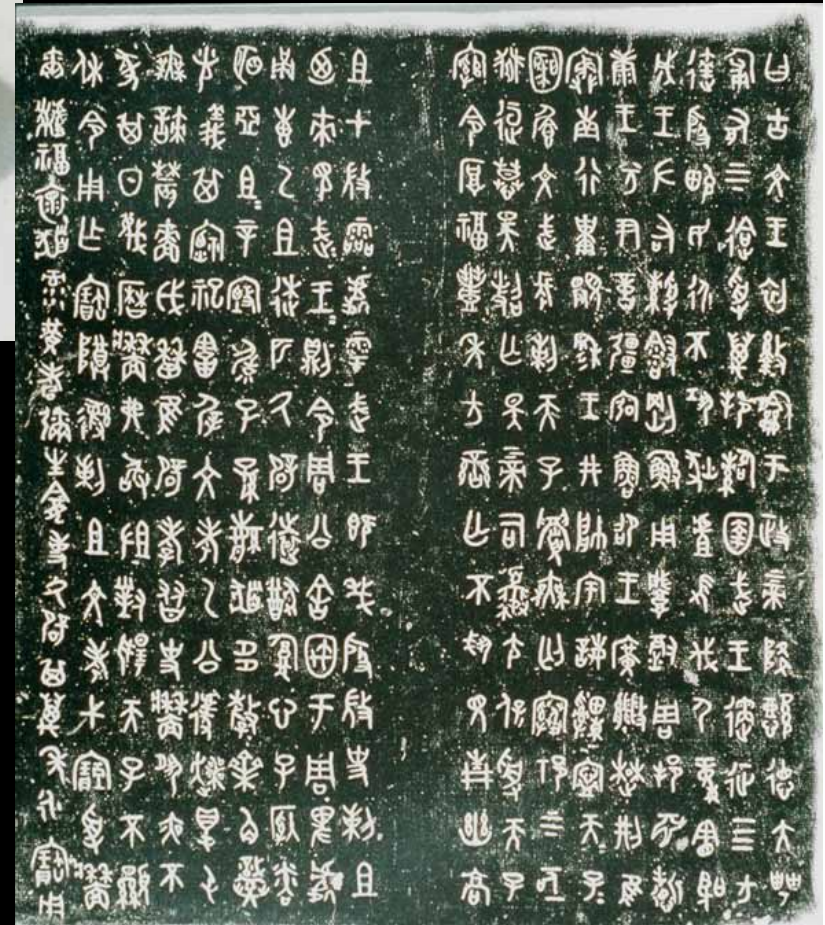 曰古文王初盭龢于政上帝降懿德大甹
匍有上下迨受萬邦圉武王遹征四方
達殷畯民永不巩狄虘伐尸童
憲聖成王左右剛鯀用肇徹周邦淵哲
康王兮尹億彊宏魯卲王廣楚荊隹
寏南行祗穆王井帥宇誨寧天子
天子文武長剌天子無匄上下亟
慕昊亡斁上帝司夒保受天子
綰令厚福豐年方蠻亡不見青幽高
且才微靈處雩武王既殷微史剌且
迺來見武王武王則令周公舍于周卑處
甬叀乙且匹氒辟遠猷腹心子明
亞且且辛毓子孫多齊角光
義其禋祀文考乙公遽得屯
無諫農嗇戉曆隹辟孝友史牆夙夜不
墜其日蔑曆牆弗敢沮對揚天子不顯
休令用乍寶尊彝剌且文考弋寶受牆
爾福懷彔黃耇彌生龕事氒辟其萬年永寶用